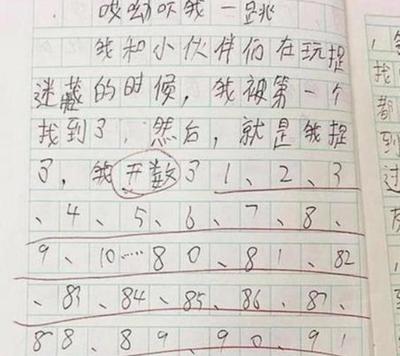 哎呦吓我一跳
我和小伙伴们在玩捉
迷藏的时候，我被第一个
找到了，然后，就是我捉
了，我开数了1、2、3
、4、5、6、7、8、
9、10……80、81、82
、83、84、85、86、87、
88、89、90、91
找
都
到
过